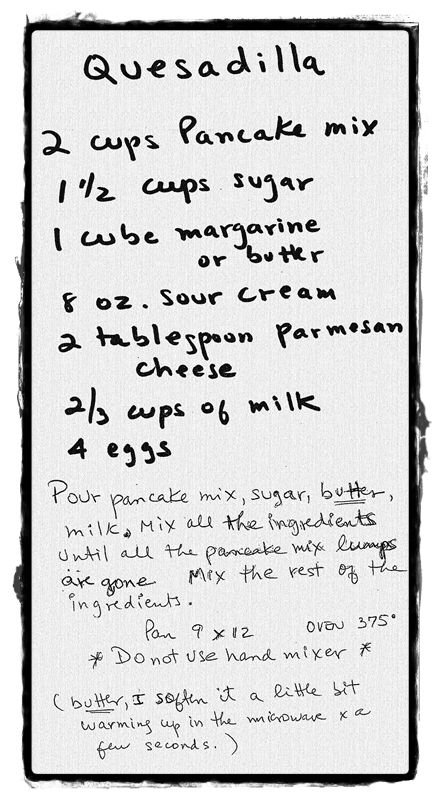 Quesadilla
2 cups Pancake mix
1 1/2 cups sugar
1 cube margarine
or butter
8 oz. sour cream
2 tablespoon parmesan
cheese
2/3 cups of milk
4 eggs
Pour pancake mix, sugar, butter,
milk. Mix all the ingredients
until all the pancake mix lumps
are gone Mix the rest of the
ingredients.
Pan 9 x 12 OVEN 375°
* Do not use hand mixer *
(butter, I soften it a little bit
warming up in the microwave x a
few seconds.)